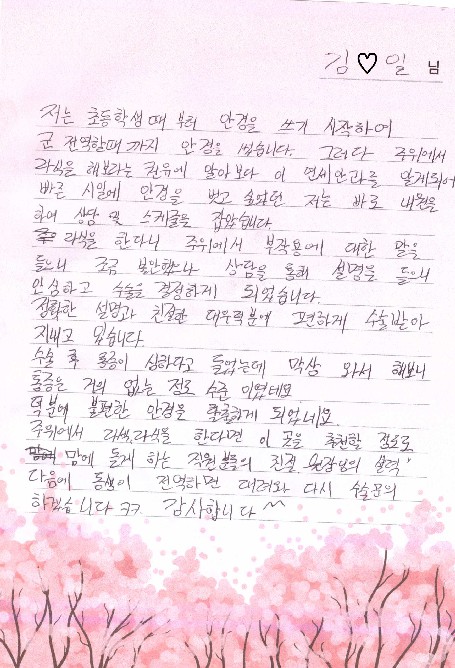 김♡일 님
저는 초등학생때 부터 안경을 쓰기 시작하여
군 전역할때 까지 안경을 썼습니다. 그러다 주위에서
라식을 해보라는 권유에 알아보다 이 연세안과를 알게되어
빠른 시일에 안경을 벗고 싶었던 저는 바로 내원을
하여 상담 및 스케줄을 잡았습니다.
라식을 한다니 주위에서 부작용에 대한 말을
들으니 조금 불안했으나 상담을 통해 설명을 들으니
안심하고 수술을 결정하게 되었습니다.
정확한 설명과 친절한 대우덕분에 편하게 수술받아
지내고 있습니다.
수술 후 통증이 심하다고 들었는데 막상 와서 해보니
통증은 거의 없는 정도 수준 이였네요
덕분에 불편한 안경을 탈출하게 되었네요.
주위에서 라섹,라식을 한다면 이 곳을 추천할 정도로
맘에 들게 하는 직원분들의 친절, 원장님의 실력,
다음에 동생이 전역하면 데려와 다시 수술문의
하겠습니다 ㅋㅋ 감사합니다 ^^